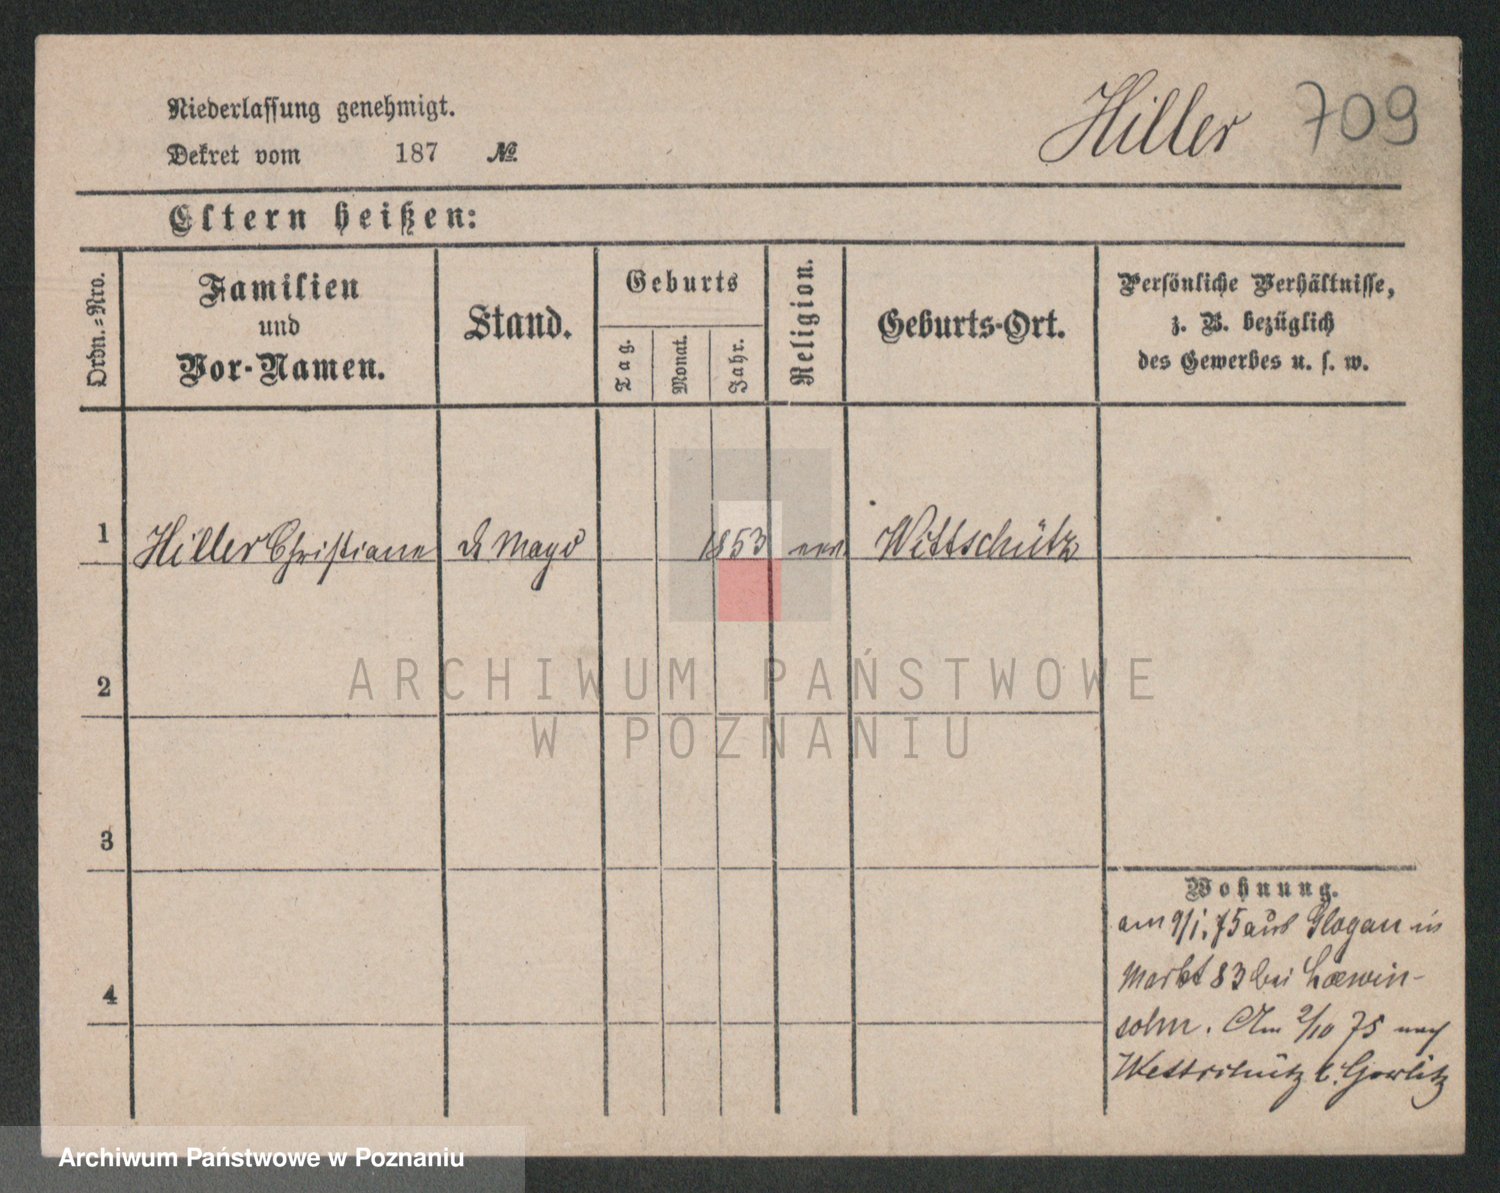 Niederlassung genehmigt.
Dekret vom 187 №
Hiller 709
Eltern heißen:
Ordn.=Nro.
Familien
und
Vor-Namen.
Stand.
Geburts
Tag.
Monat.
Jahr.
Religion.
Geburts-Ort.
Persönliche Verhältnisse,
z. B. bezüglich
des Gewerbes u. s. w.
1 Hiller Christiane 1853 Wittschütz
2
ARCHIWUM PAŃSTWOWE
W POZNANIU
3
4
Wohnung.
am 9/1. 75 aus Glogau in
Markt 83 bei Loewin-
sohn. Am 2/10 75 nach
Archiwum Państwowe w Poznaniu